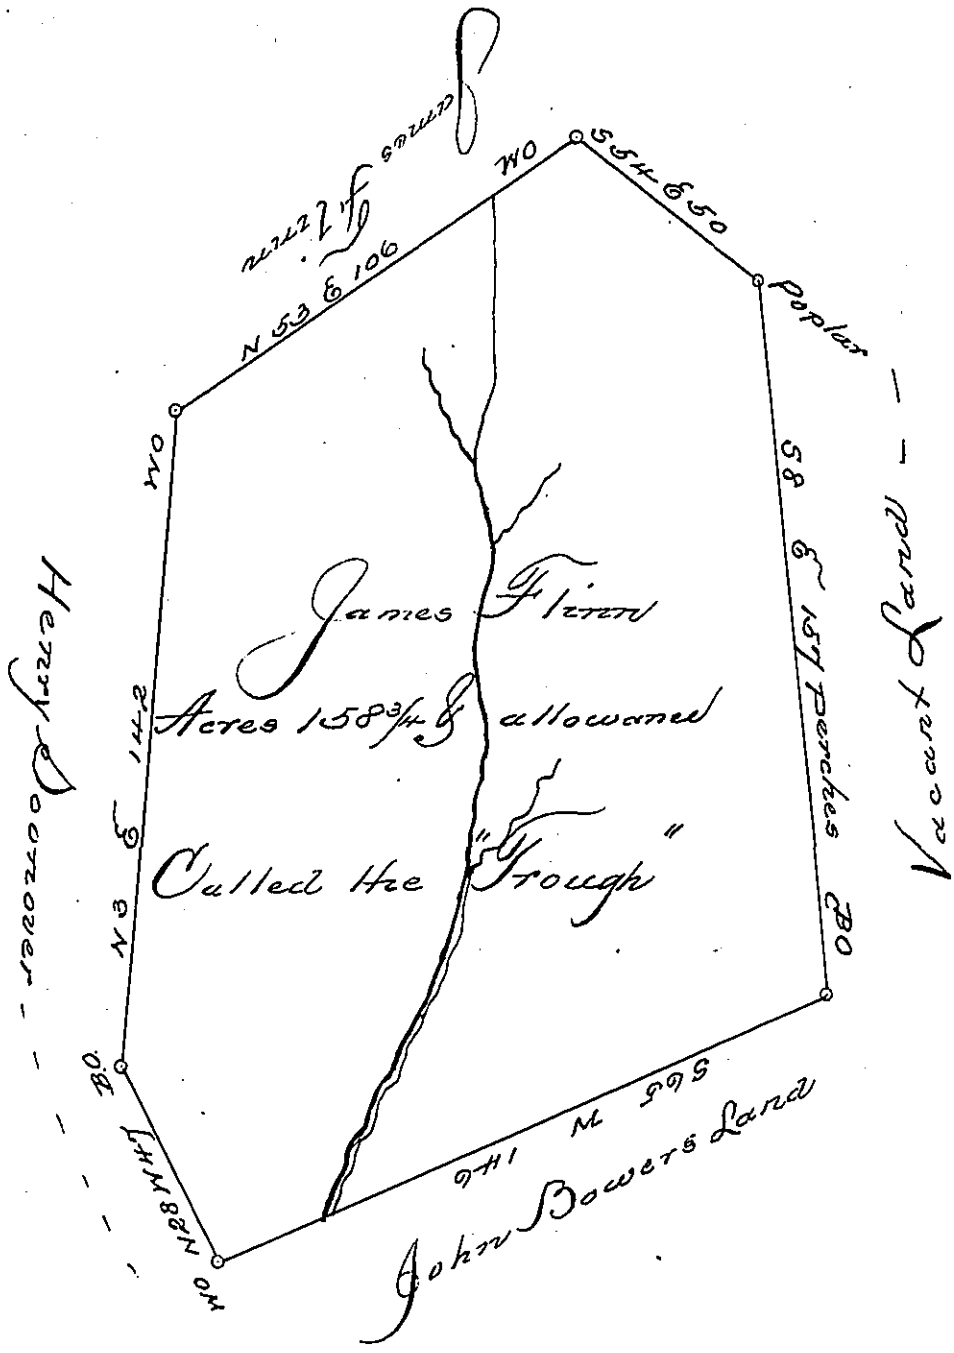 James Flinn
WO
S54 E 50
poplar
N 53 E 106
WO
S8 E 157 perches
BO
Vacant Land - -
James Flinn
Acres 158 3/4 & allowance
Called the "Trough"
N3 E 142
B.O.
N28 W 47
WO
S65 W 146
John Bowers Land
Henry